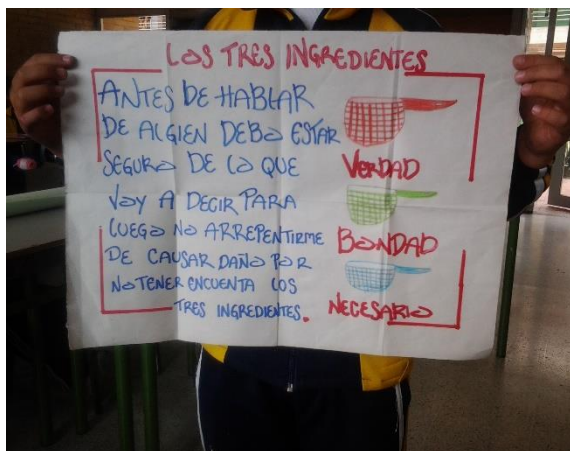 LOS TRES INGREDIENTES
ANTES DE HABLAR
DE ALGIEN DEBO ESTAR
SEGURO DE LO QUE
VOY A DECIR PARA
LUEGO NO ARREPENTIRME
DE CAUSAR DAÑO POR
NO TENER ENCUENTA LOS
TRES INGREDIENTES.
VERDAD
BONDAD
NECESARIO